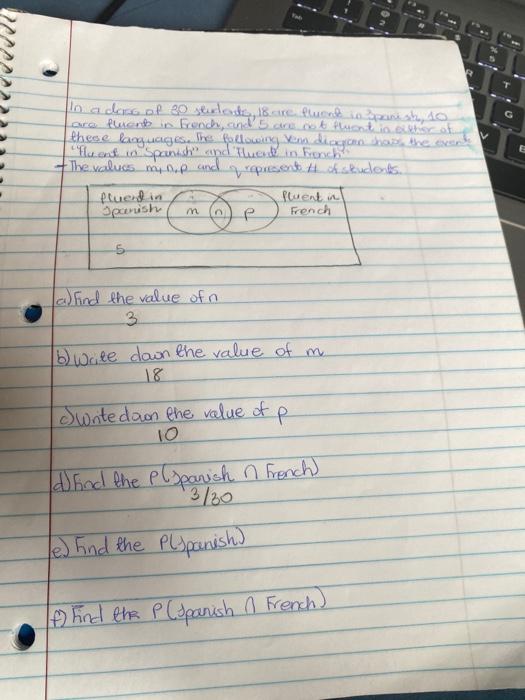 In a class of 30 students, 18 are fluent in Spanish, 10
are fluent in French, and 5 are not fluent in either of
these languages. The following Venn diagram shows the event
"fluent in Spanish" and fluent in French".
- The values m, n, p and q represent # of students.
fluent in
Spanish
m
n
p
fluent in
French
5
a) Find the value of n
3
b) Write down the value of m
18
c) Write down the value of p
10
d) Find the P(Spanish ∩ French)
3/30
e) Find the P(Spanish)
f) Find the P(Spanish ∩ French)